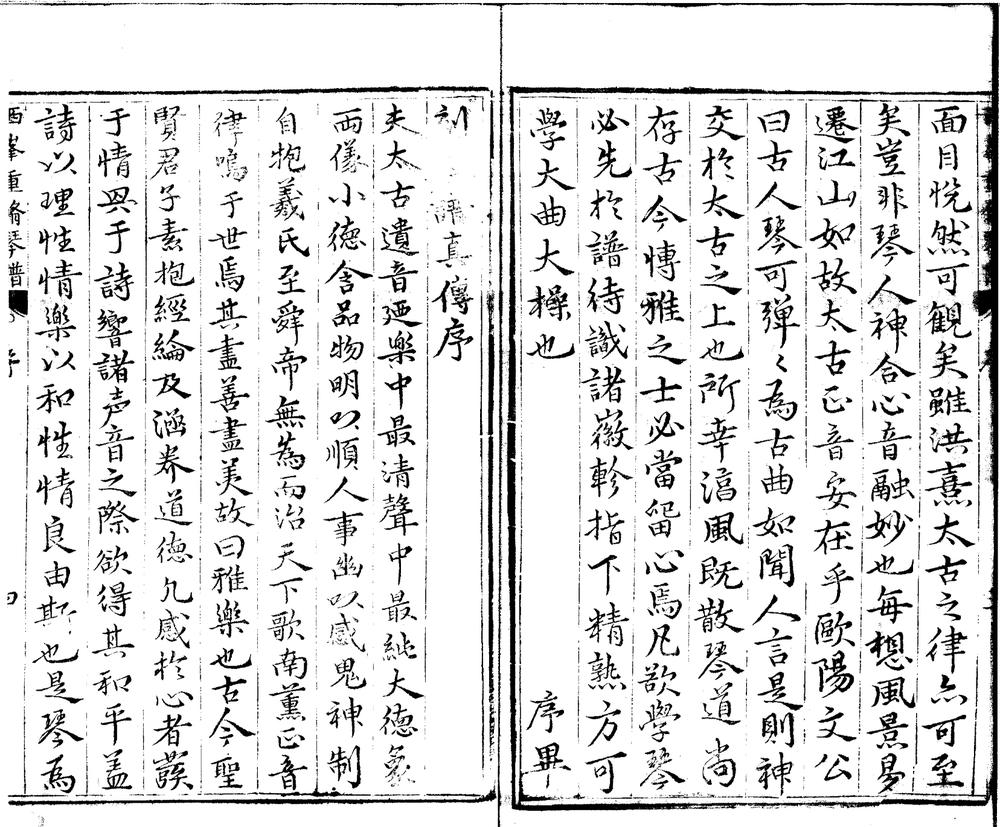 面目恍然可観矣雖洪熹太古之律亦可至
矣豈非琴人神合心音融妙也每想風景易
遷江山如故太古正音安在乎歐陽文公
曰古人琴可弾〻為古曲如聞人言是則神
交於太古之上也所幸淳風既散琴道尚
存古今慱雅之士必當留心焉凡欲學琴
必先於譜待識諸徽軫指下精熟方可
學大曲大操也　序畢
刻　譜真傳序
夫太古遺音廼樂中最清聲中最純大德象
両儀小德含品物明以順人事幽以感鬼神制
自抱羲氏至舜帝無為而治天下歌南薫正音
律鳴于世焉其盡善盡美故曰雅樂也古今聖
賢君子素抱經綸及涵养道德凢感於心者蕟
于情興于詩響諸声音之際欲得其和平盖
詩以理性情樂以和性情良由斯也是琴焉
西峯重脩琴譜　序　四